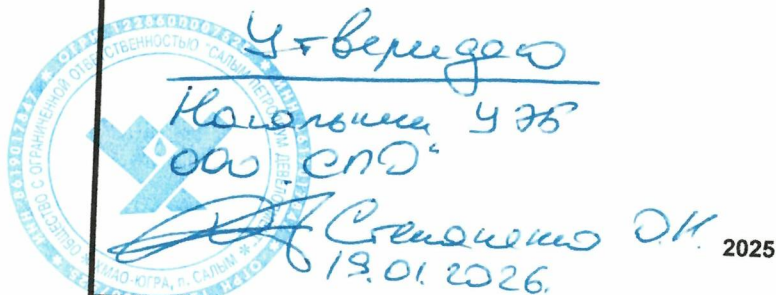 Утверждаю
Начальник УЭБ
ООО "СПД"
Степаненко О.Н.
19.01.2026.
2025
ОБЩЕСТВО С ОГРАНИЧЕННОЙ ОТВЕТСТВЕННОСТЬЮ "САЛЫМ ПЕТРОЛЕУМ
ХМАО-ЮГРА, п. САЛЫМ
ИНН 8619017847